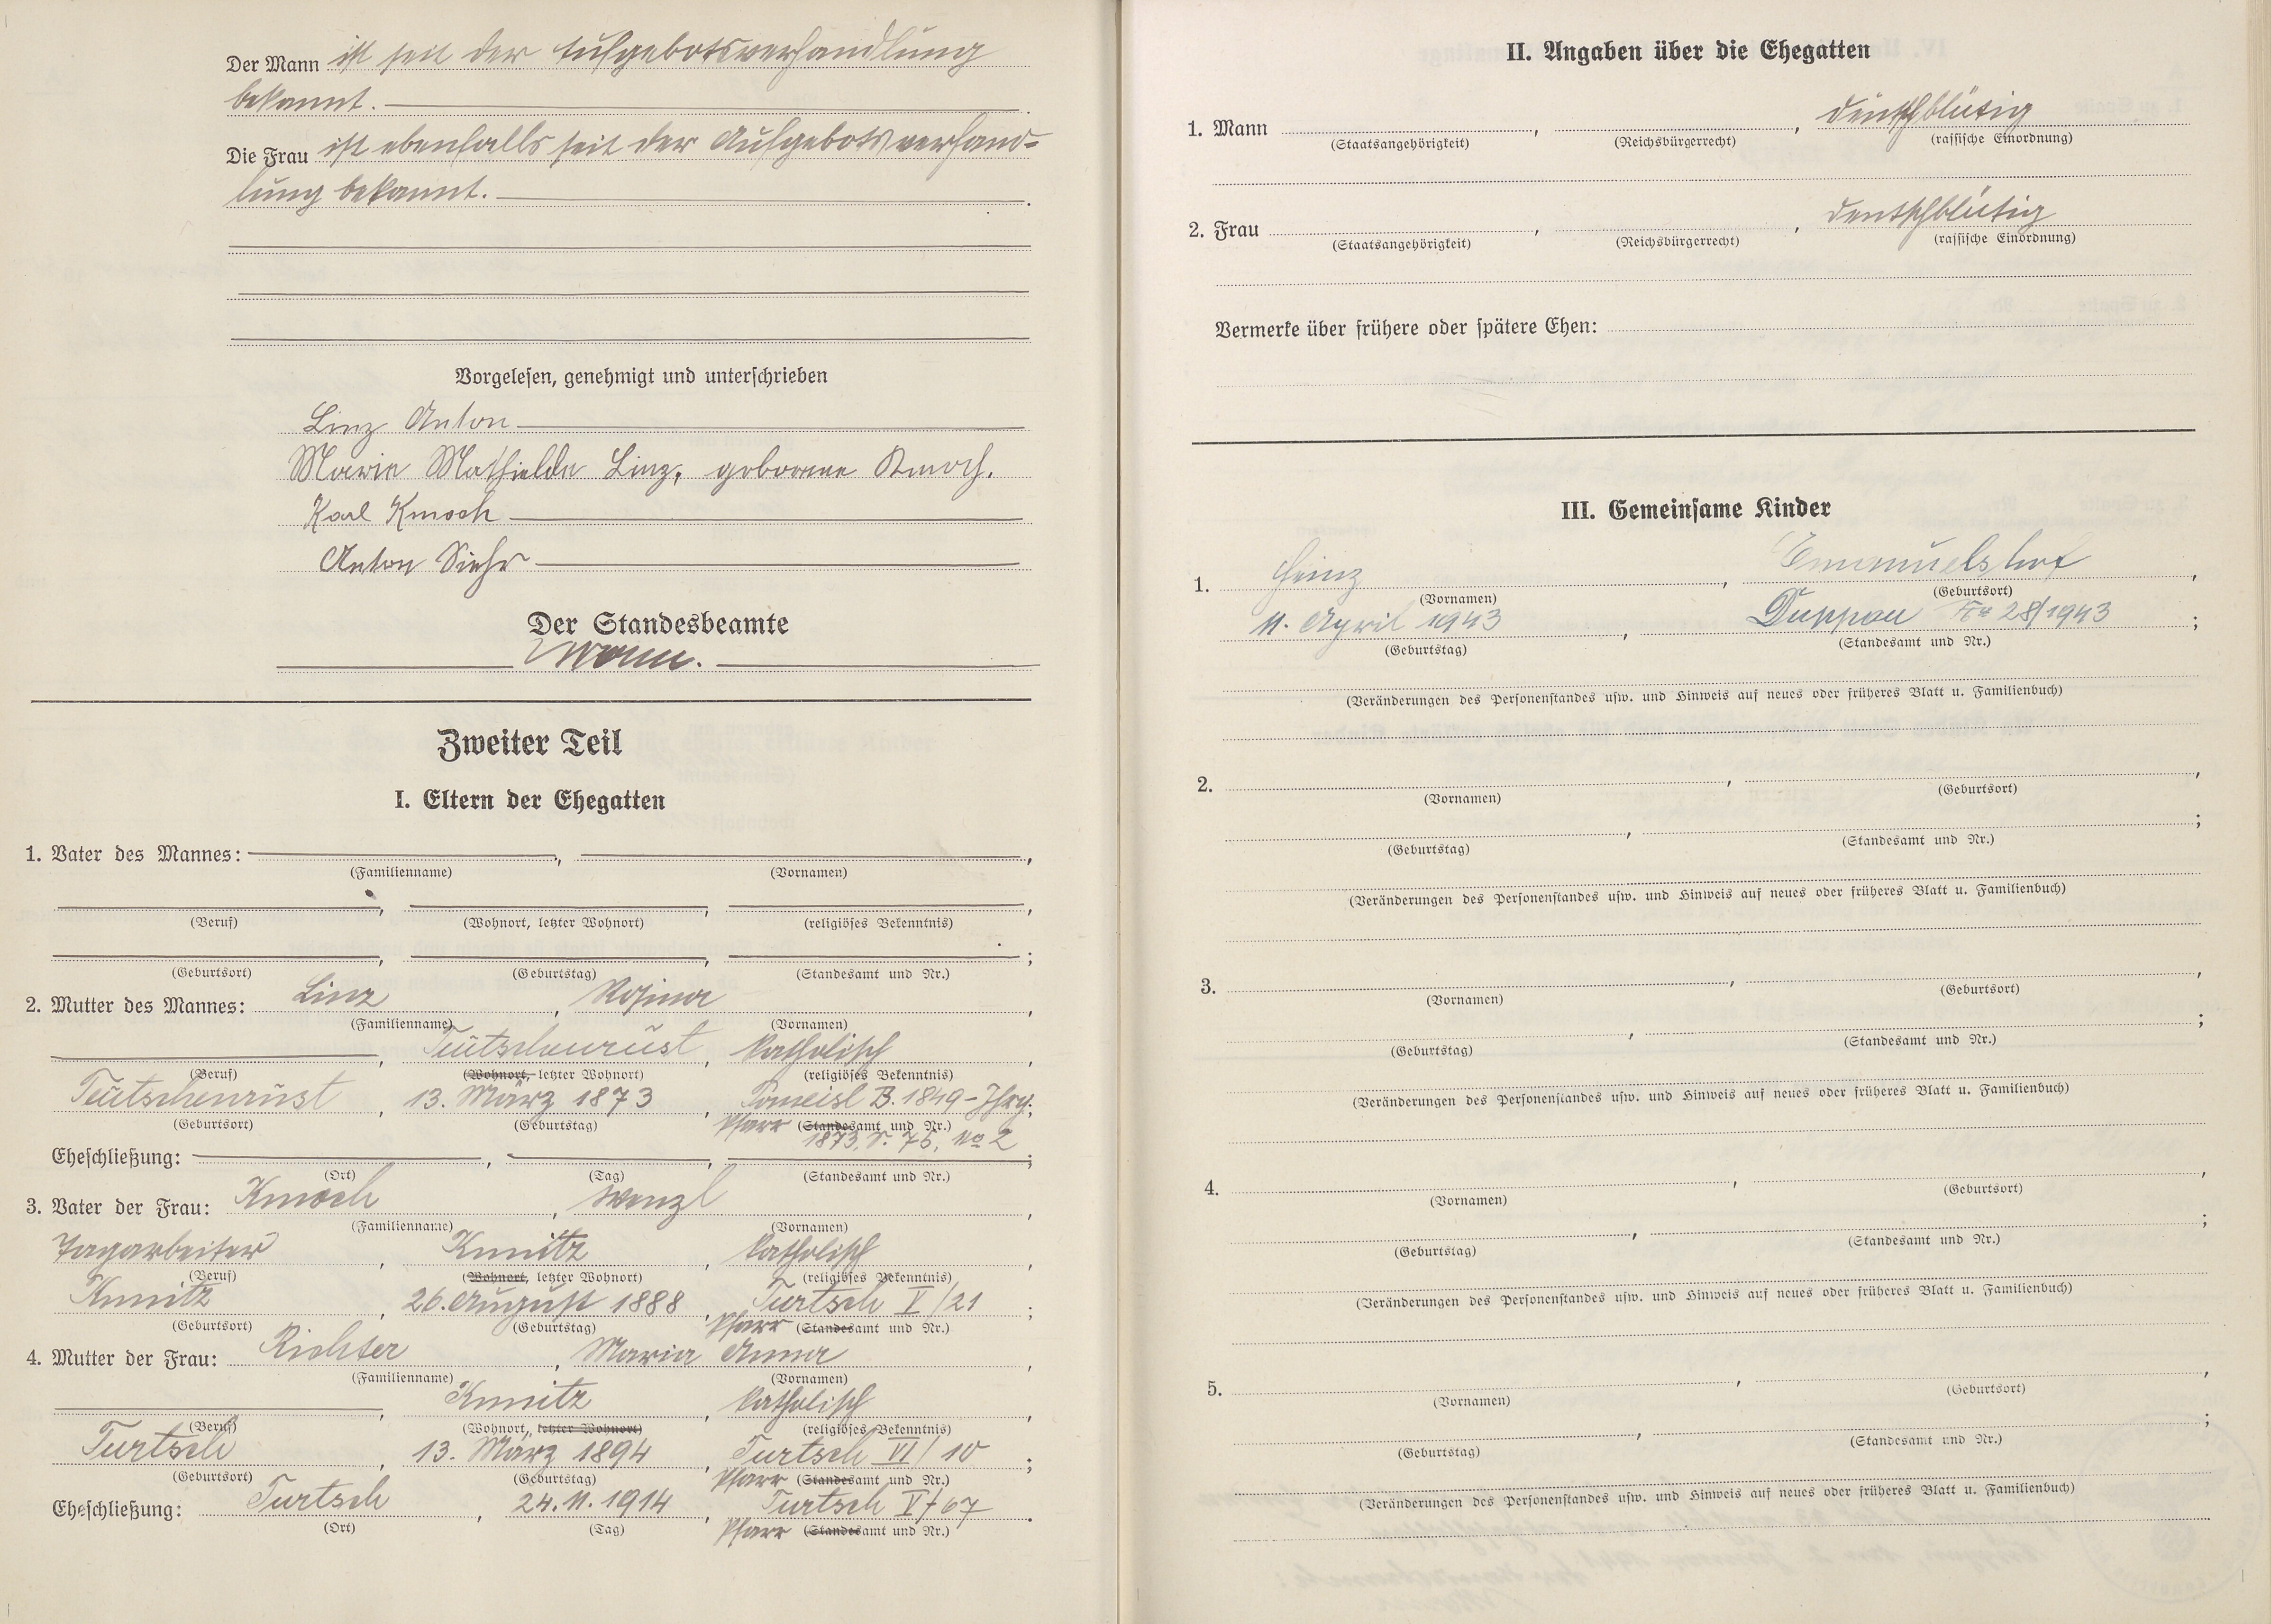 Der Mann ist seit der Aufgebotsverhandlung
bekannt.
Die Frau ist ebenfalls seit der Aufgebotsverhand=
lung bekannt.
Vorgelesen, genehmigt und unterschrieben
Linz Anton
Marie Mathielde Linz, geborene Kmoch.
Karl Kmoch
Anton Siehr
Der Standesbeamte
Zweiter Teil
I. Eltern der Ehegatten
1. Vater des Mannes: , ,
(Familienname) (Vornamen)
, , ,
(Beruf) (Wohnort, letzter Wohnort) (religiöses Bekenntnis)
, , ;
(Geburtsort) (Geburtstag) (Standesamt und Nr.)
2. Mutter des Mannes: Linz , Rosina ,
(Familienname) (Vornamen)
, Teutschenrust , katholisch ,
(Beruf) (Wohnort, letzter Wohnort) (religiöses Bekenntnis)
Teutschenrust , 13. März 1873 , Pomeisl B. 1849-Jhrg.
(Geburtsort) (Geburtstag) Pfarr (Standesamt und Nr.)
1873, S. 76, No 2
Eheschließung: , , ;
(Ort) (Tag) (Standesamt und Nr.)
3. Vater der Frau: Kmoch , Wenzl ,
(Familienname) (Vornamen)
Tagarbeiter , Kunitz , katholisch ,
(Beruf) (Wohnort, letzter Wohnort) (religiöses Bekenntnis)
Kunitz , 26. August 1888 , Turtsch V/21 ;
(Geburtsort) (Geburtstag) Pfarr (Standesamt und Nr.)
4. Mutter der Frau: Richter , Maria Anna ,
(Familienname) (Vornamen)
, Kunitz , katholisch ,
(Beruf) (Wohnort, letzter Wohnort) (religiöses Bekenntnis)
Turtsch , 13. März 1894 , Turtsch VI/10 ;
(Geburtsort) (Geburtstag) Pfarr (Standesamt und Nr.)
Eheschließung: Turtsch , 24.11.1914 , Turtsch V/67 .
(Ort) (Tag) Pfarr (Standesamt und Nr.)
II. Angaben über die Ehegatten
1. Mann , , deutschblütig
(Staatsangehörigkeit) (Reichsbürgerrecht) (rassische Einordnung)
2. Frau , , deutschblütig
(Staatsangehörigkeit) (Reichsbürgerrecht) (rassische Einordnung)
Vermerke über frühere oder spätere Ehen:
III. Gemeinsame Kinder
1. Heinz , Emanuelshof ,
(Vornamen) (Geburtsort)
11. April 1943 , Duppau Nr 28/1943 ;
(Geburtstag) (Standesamt und Nr.)
(Veränderungen des Personenstandes usw. und Hinweis auf neues oder früheres Blatt u. Familienbuch)
2. , ,
(Vornamen) (Geburtsort)
, ;
(Geburtstag) (Standesamt und Nr.)
(Veränderungen des Personenstandes usw. und Hinweis auf neues oder früheres Blatt u. Familienbuch)
3. , ,
(Vornamen) (Geburtsort)
, ;
(Geburtstag) (Standesamt und Nr.)
(Veränderungen des Personenstandes usw. und Hinweis auf neues oder früheres Blatt u. Familienbuch)
4. , ,
(Vornamen) (Geburtsort)
, ;
(Geburtstag) (Standesamt und Nr.)
(Veränderungen des Personenstandes usw. und Hinweis auf neues oder früheres Blatt u. Familienbuch)
5. , ,
(Vornamen) (Geburtsort)
, ;
(Geburtstag) (Standesamt und Nr.)
(Veränderungen des Personenstandes usw. und Hinweis auf neues oder früheres Blatt u. Familienbuch)